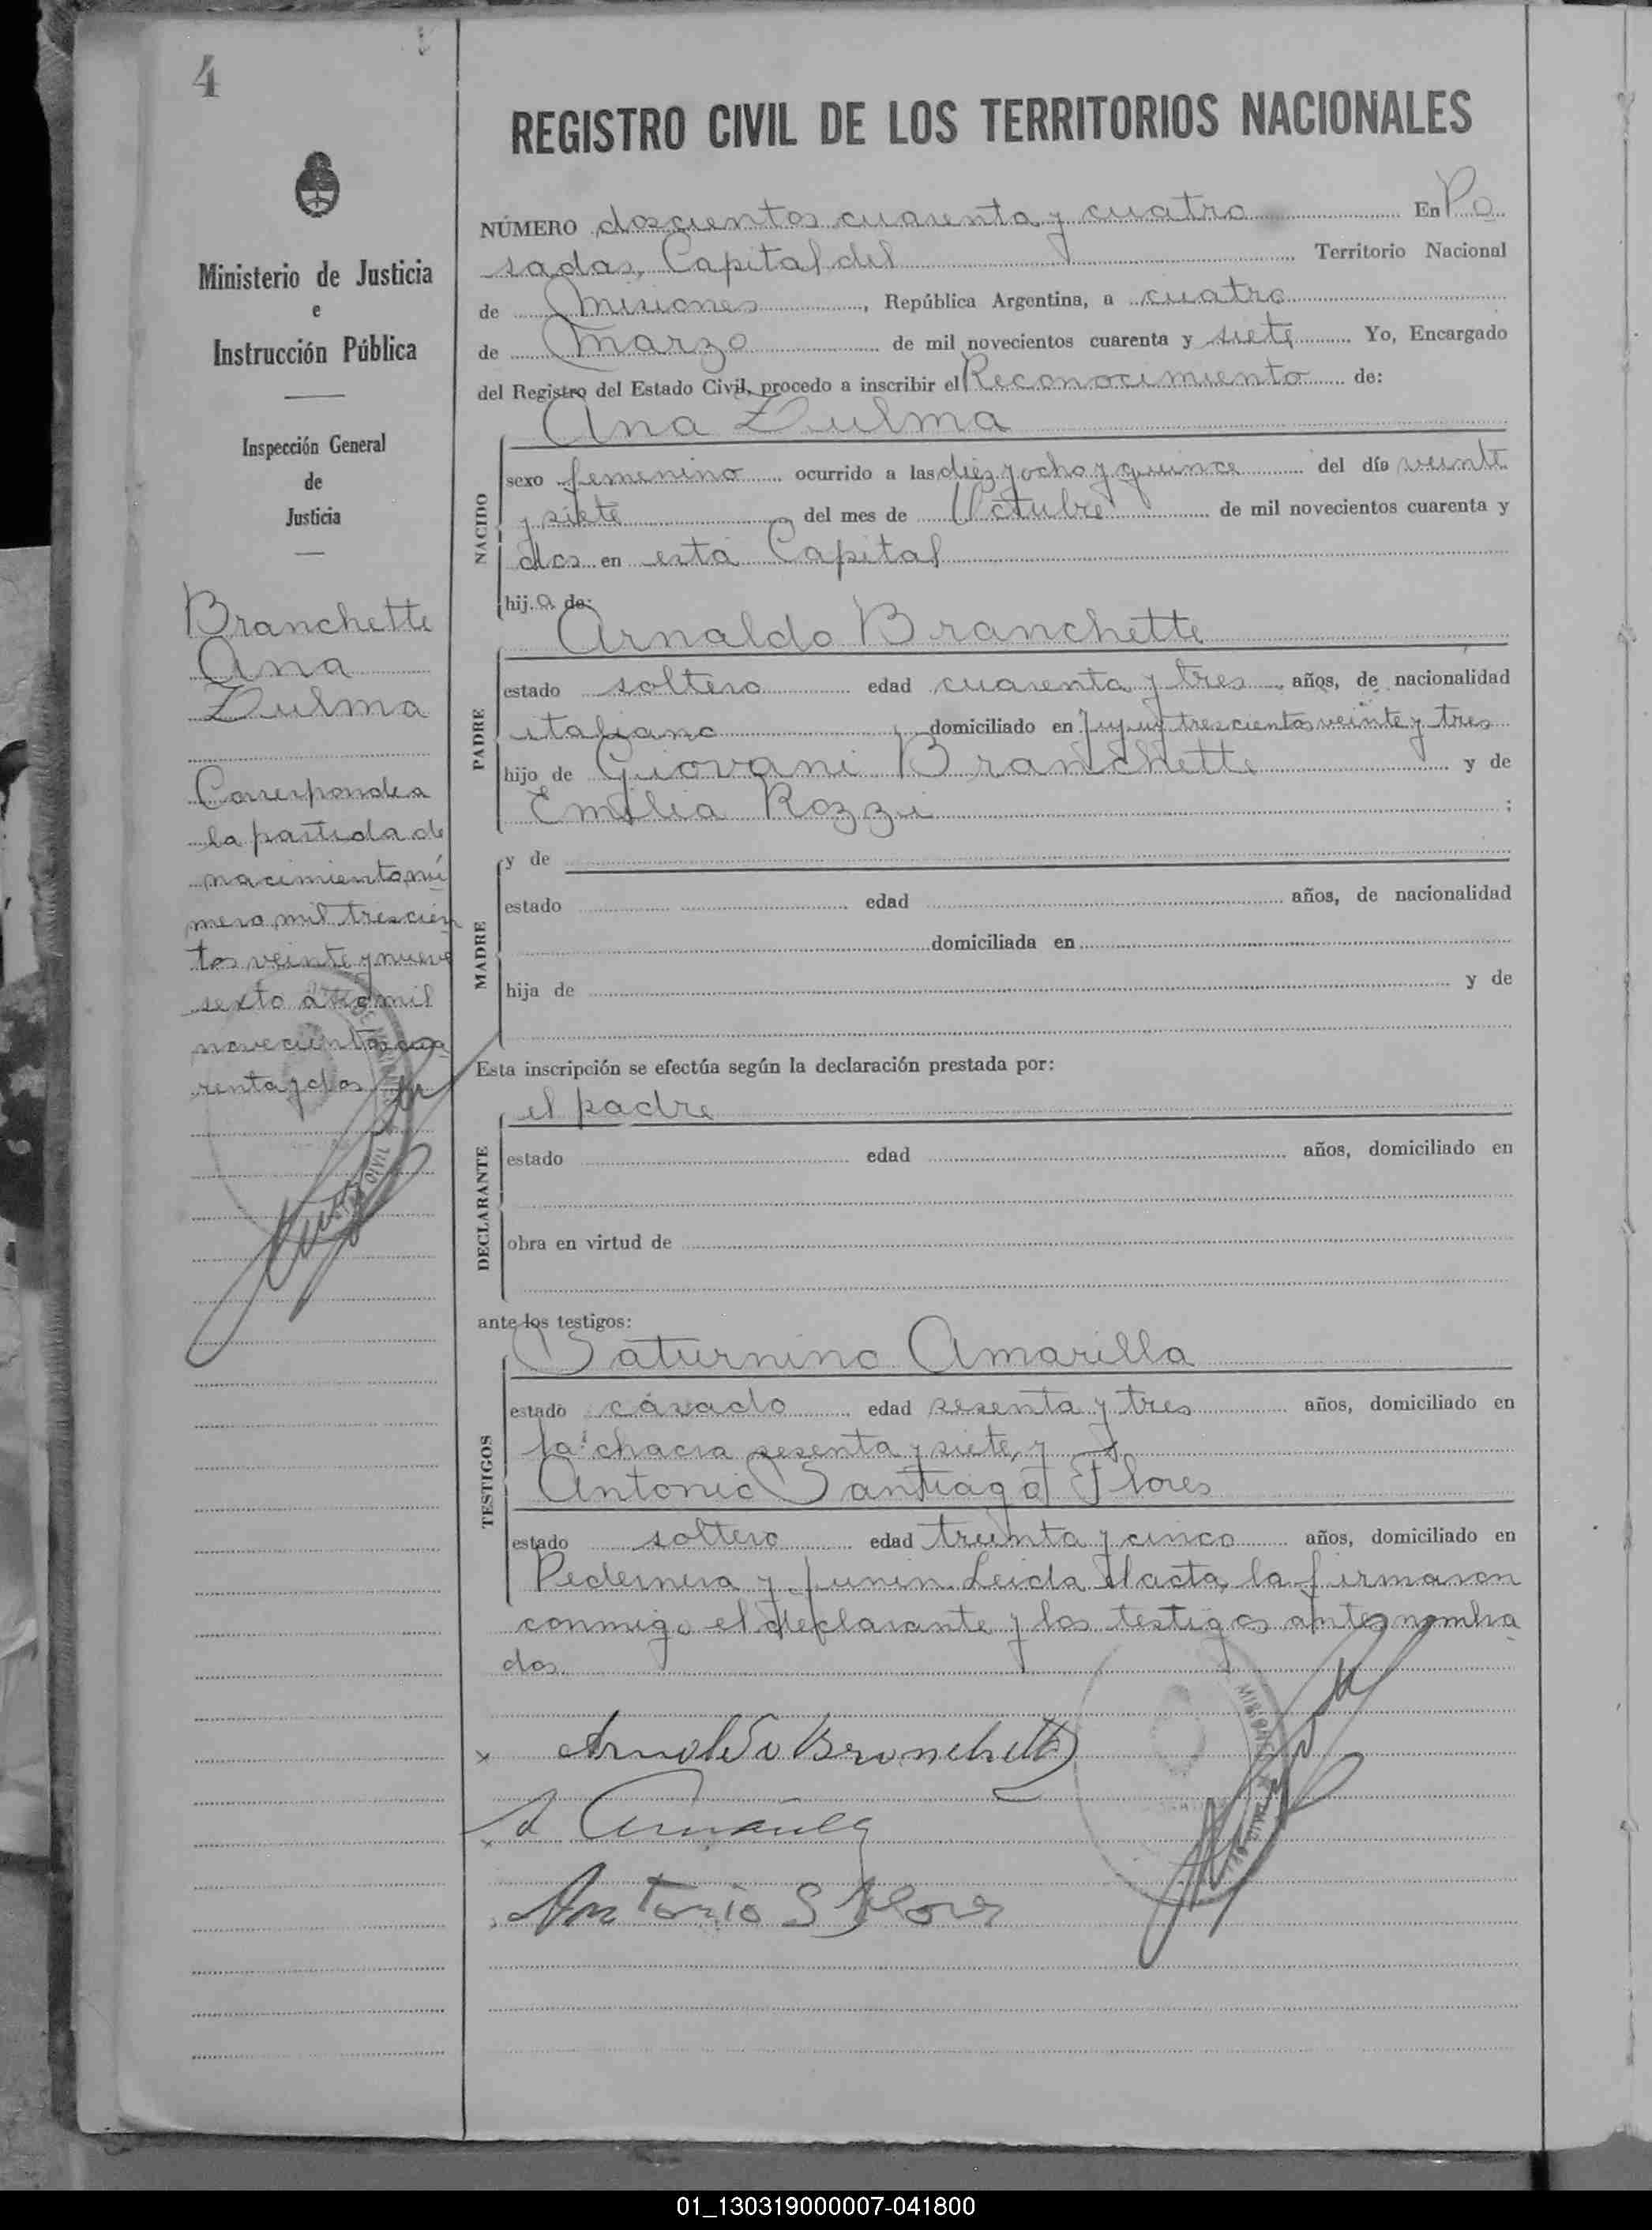 4
REGISTRO CIVIL DE LOS TERRITORIOS NACIONALES
Ministerio de Justicia
e
Instrucción Pública
Inspección General
de
Justicia
Branchette
Ana
Zulma
Corresponde a
la partida de
nacimiento nú
mero mil trescien
tos veinte y nueve
sexto año mil
novecientos cua
renta y dos
NÚMERO doscientos cuarenta y cuatro En Po
sadas, Capital del Territorio Nacional
de Misiones, República Argentina, a cuatro
de Marzo de mil novecientos cuarenta y siete Yo, Encargado
del Registro del Estado Civil, procedo a inscribir el Reconocimiento de:
Ana Zulma
NACIDO
sexo femenino ocurrido a las diez y ocho y quince del día veinte
y siete del mes de Octubre de mil novecientos cuarenta y
dos en esta Capital
hija de:
Arnaldo Branchette
PADRE
estado soltero edad cuarenta y tres, años, de nacionalidad
italiano, domiciliado en Jujuy trescientos veinte y tres
hijo de Giovani Branchette y de
Emilia Rozzi ;
MADRE
y de
estado edad años, de nacionalidad
domiciliada en
hija de y de
Esta inscripción se efectúa según la declaración prestada por:
el padre
DECLARANTE
estado edad años, domiciliado en
obra en virtud de
ante los testigos:
Saturnino Amarilla
TESTIGOS
estado casado edad sesenta y tres años, domiciliado en
la chacra sesenta y siete, y
Antonio Santiago Flores
estado soltero edad treinta y cinco años, domiciliado en
Pedernera y Junin. Leida el acta, la firmaron
conmigo el declarante y los testigos antes nombra
dos.
x Arnoldo Bronchette
x S Amarilla
Antonio S Flores
01_130319000007-041800